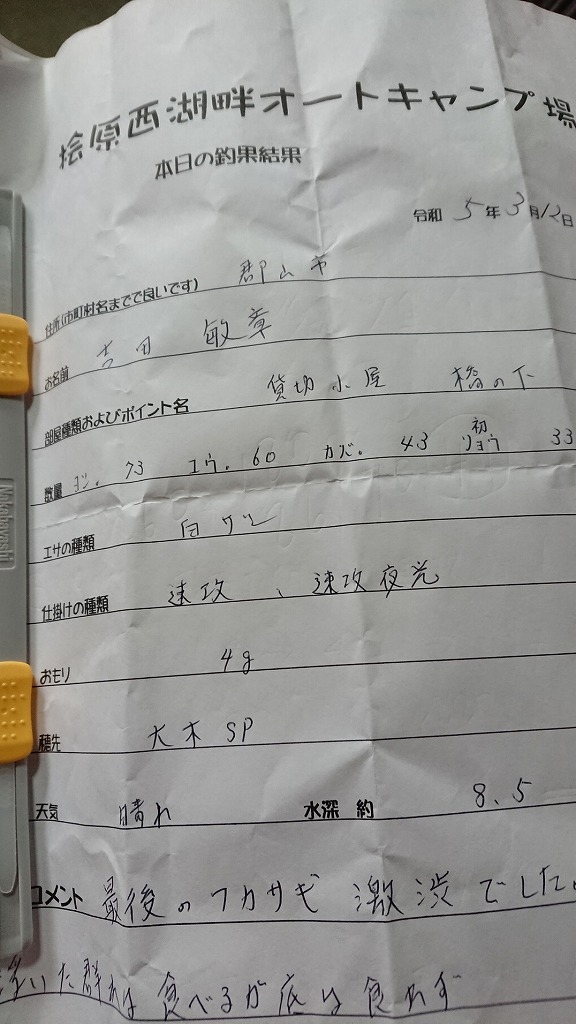 桧原西湖畔オートキャンプ場
本日の釣果結果
令和 5年 3月12日
住所(市町村名までで良いです) 郡山市
お名前 吉田 敏章
部屋種類およびポイント名 貸切小屋 橋の下
数量 ヨシ. 73 ユウ. 60 カズ. 43 初リョウ 33
エサの種類 白サシ
仕掛けの種類 速攻、速攻夜光
おもり 4g
穂先 大木 SP
天気 晴れ 水深 約 8.5
コメント 最後のワカサギ 激渋でした。
浮いた群れは 食べるが底は食わず
Nakabayashi